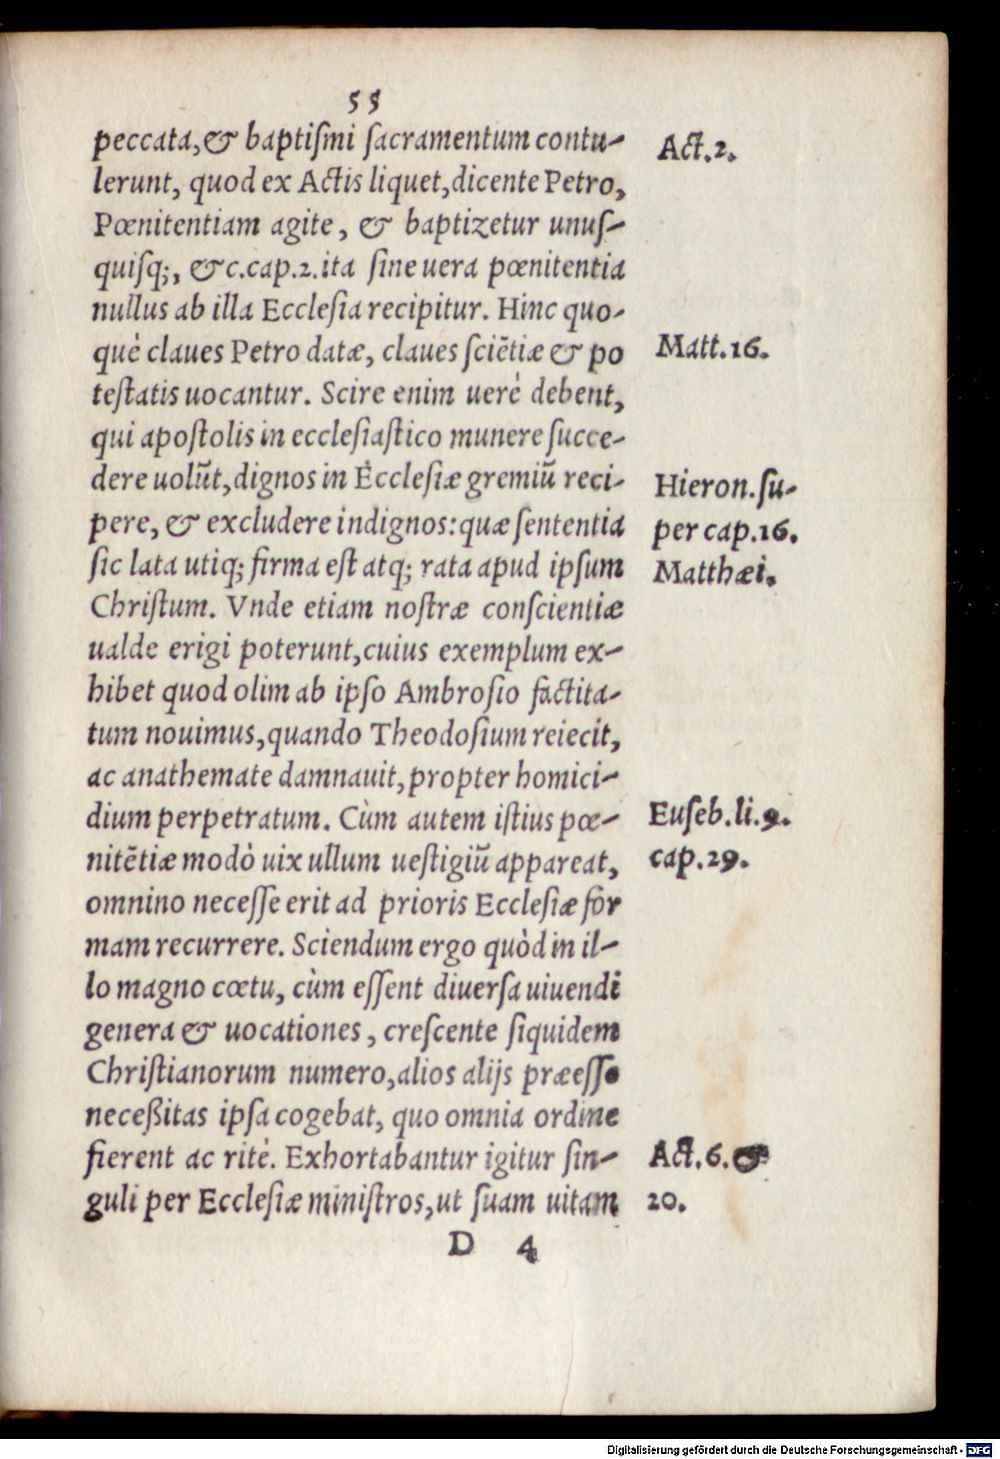 55
peccata, & baptiſmi ſacramentum contu-
lerunt, quod ex Actis liquet, dicente Petro,
Pœnitentiam agite, & baptizetur unuſ-
quiſq;, &c. cap. 2. ita ſine uera pœnitentia
nullus ab illa Eccleſia recipitur. Hinc quo-
què claues Petro datæ, claues ſciētiæ & po
teſtatis uocantur. Scire enim uerè debent,
qui apoſtolis in eccleſiaſtico munere ſucce-
dere uolūt, dignos in Eccleſiæ gremiū reci-
pere, & excludere indignos: quæ ſententia
ſic lata utiq; firma eſt atq; rata apud ipſum
Chriſtum. Vnde etiam noſtræ conſcientiæ
ualde erigi poterunt, cuius exemplum ex-
hibet quod olim ab ipſo Ambroſio factita-
tum nouimus, quando Theodoſium reiecit,
ac anathemate damnauit, propter homici-
dium perpetratum. Cùm autem iſtius pœ-
nitētiæ modò uix ullum ueſtigiū appareat,
omnino neceſſe erit ad prioris Eccleſiæ for
mam recurrere. Sciendum ergo quòd in il-
lo magno cœtu, cùm eſſent diuerſa uiuendi
genera & uocationes, creſcente ſiquidem
Chriſtianorum numero, alios alijs præeſſe
neceßitas ipſa cogebat, quo omnia ordine
fierent ac ritè. Exhortabantur igitur ſin-
guli per Eccleſiæ miniſtros, ut ſuam uitam
D 4
Act. 2.
Matt. 16.
Hieron. ſu-
per cap. 16.
Matthæi.
Euſeb. li. 9.
cap. 29.
Act. 6. &
20.
Digitalisierung gefördert durch die Deutsche Forschungsgemeinschaft - DFG